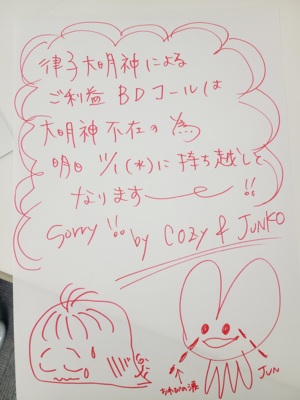 律子大明神による
ご利益 BDコールは
大明神不在の為
明日 11/1(水)に持ち越しと
なります〜!!
Sorry!! by COZY & JUNKO
JUN